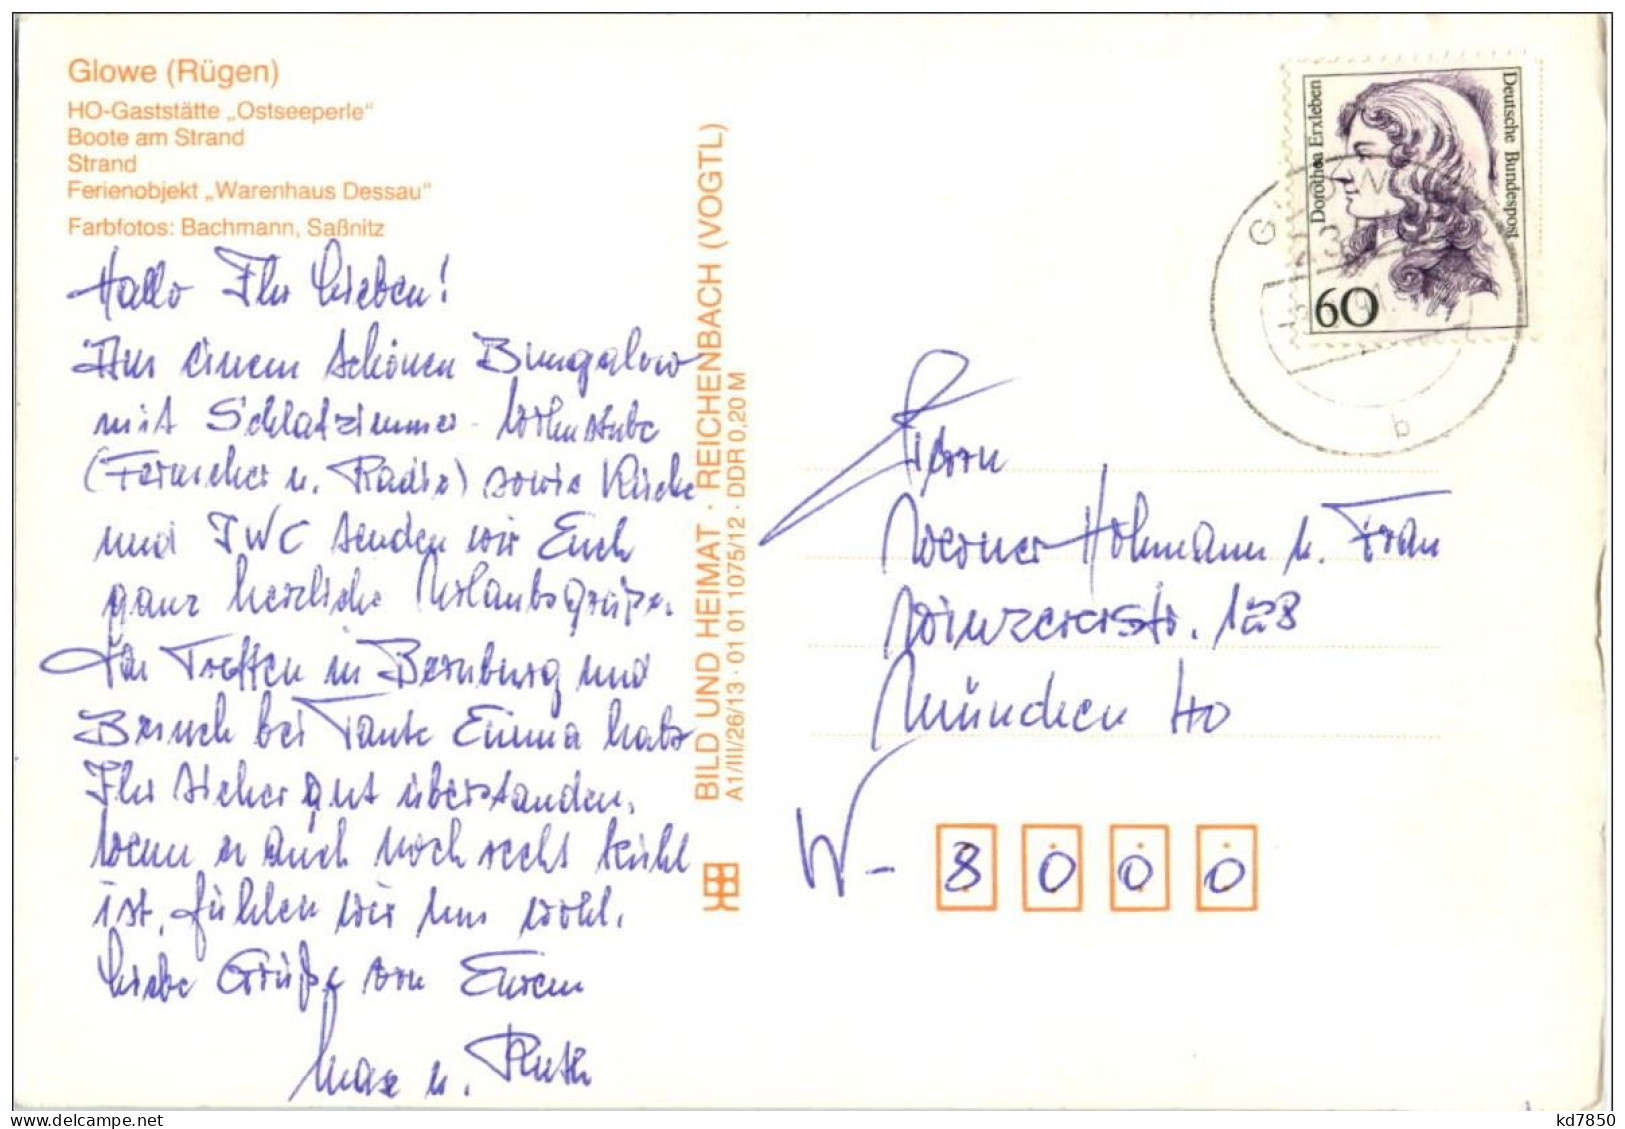 Glowe (Rügen)
HO-Gaststätte „Ostseeperle“
Boote am Strand
Strand
Ferienobjekt „Warenhaus Dessau“
Farbfotos: Bachmann, Saßnitz
Hallo Ihr Lieben!
Aus einem schönen Bungalow
mit Schlafzimmer - Wohnstube
(Fernseher u. Radio) sowie Küche
und IWC senden wir Euch
ganz herzliche Urlaubsgrüße.
Treffen in Bernburg und
Besuch bei Tante Emma habt
Ihr sicher gut überstanden.
Wenn es auch noch recht kühl
ist, fühlen wir uns wohl.
Liebe Grüße von Eurem
Max u. Ruth
BILD UND HEIMAT · REICHENBACH (VOGTL)
A1/III/26/13 · 01 01 1075/12 · DDR 0,20 M
Dorothea Erxleben
Deutsche Bundespost
60
b
Werner Hohmann u. Frau
Winzererstr. 128
München 40
W - 8 0 0 0
kd7850